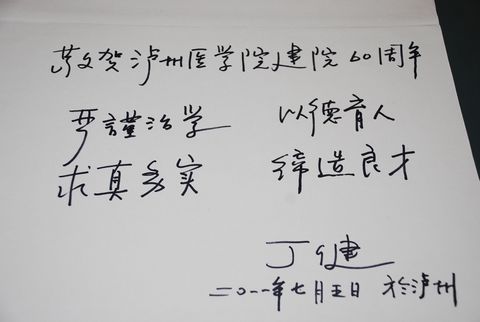 敬贺泸州医学院建院60周年
严謹治学 以德育人
求真务实 缔造良才
丁健
二〇一一年七月五日 于泸州